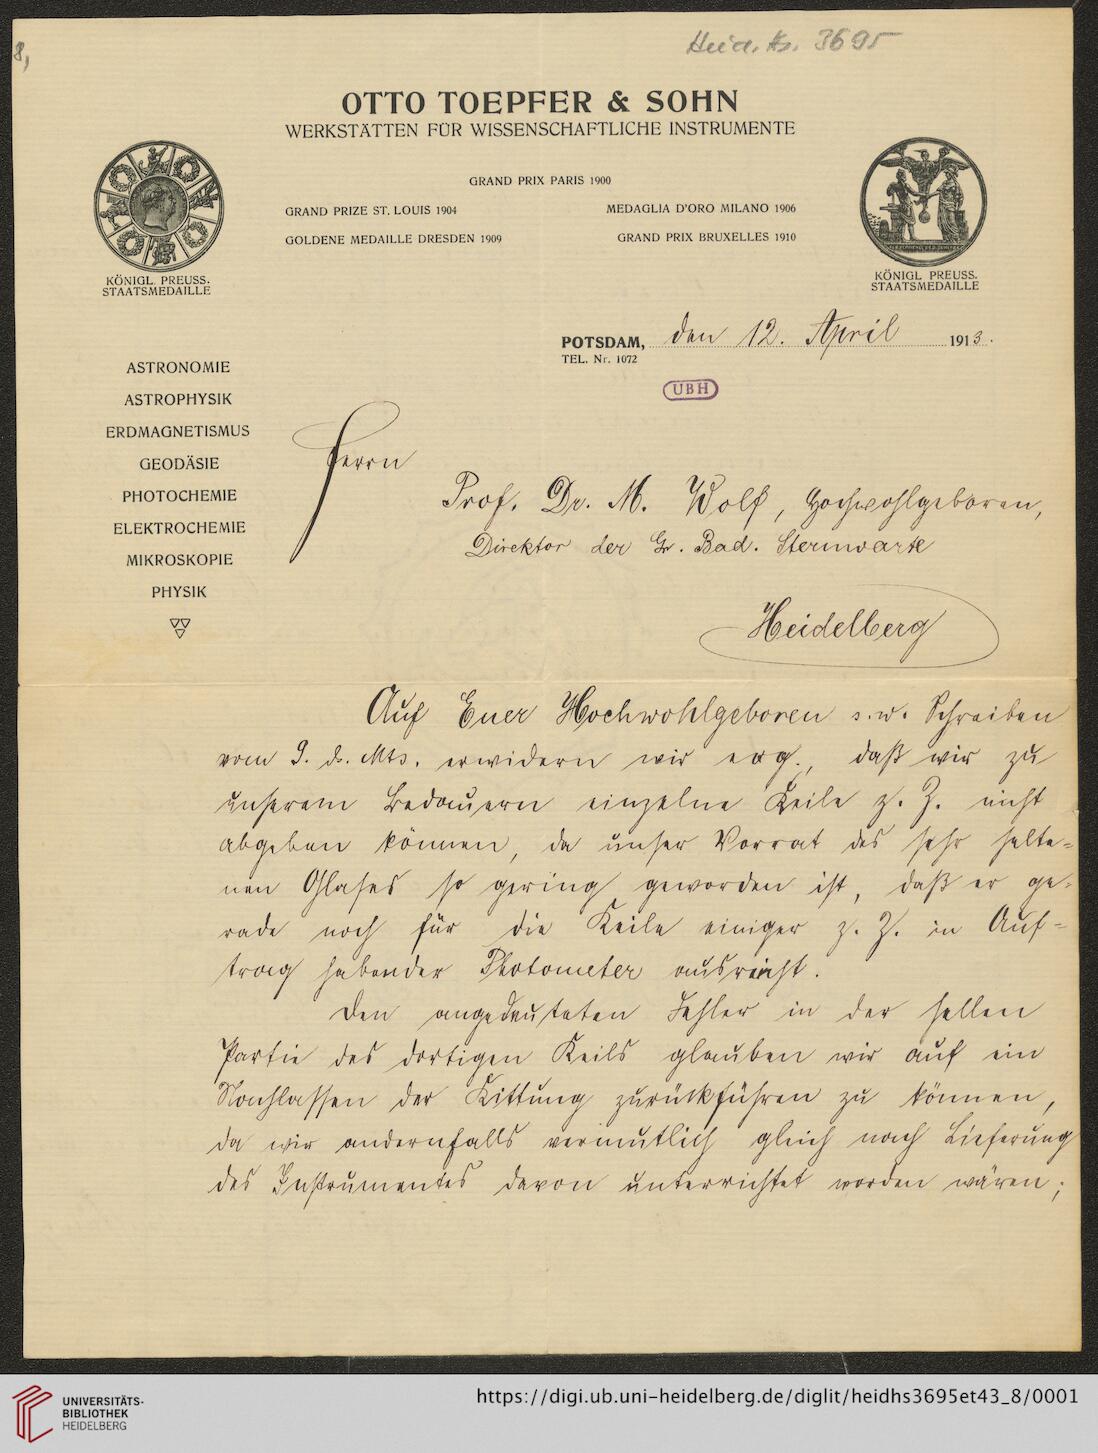 8,
Heid. Hs. 3695
OTTO TOEPFER & SOHN
WERKSTÄTTEN FÜR WISSENSCHAFTLICHE INSTRUMENTE
GRAND PRIX PARIS 1900
GRAND PRIZE ST. LOUIS 1904
MEDAGLIA D'ORO MILANO 1906
GOLDENE MEDAILLE DRESDEN 1909
GRAND PRIX BRUXELLES 1910
KÖNIGL. PREUSS.
STAATSMEDAILLE
KÖNIGL. PREUSS.
STAATSMEDAILLE
POTSDAM, den 12. April 1913.
TEL. Nr. 1072
UBH
ASTRONOMIE
ASTROPHYSIK
ERDMAGNETISMUS
GEODÄSIE
PHOTOCHEMIE
ELEKTROCHEMIE
MIKROSKOPIE
PHYSIK
Herrn
Prof. Dr. M. Wolf, Hochwohlgeboren,
Direktor der Gr. Bad. Sternwarte
Heidelberg
Auf Euer Hochwohlgeboren s. w. Schreiben
vom 9. ds. Mts. erwidern wir erg., daß wir zu
unserem Bedauern einzelne Keile z. Z. nicht
abgeben können, da unser Vorrat des sehr selte-
nen Glases so gering geworden ist, daß er ge-
rade noch für die Keile einiger z. Z. in Auf-
trag habender Photometer ausreicht.
Den angedeuteten Fehler in der hellen
Partie des dortigen Keils glauben wir auf ein
Nachlassen der Kittung zurückführen zu können,
da wir andernfalls vermutlich gleich nach Lieferung
des Instrumentes davon unterrichtet worden wären;
UNIVERSITÄTS-
BIBLIOTHEK
HEIDELBERG
https://digi.ub.uni-heidelberg.de/diglit/heidhs3695et43_8/0001